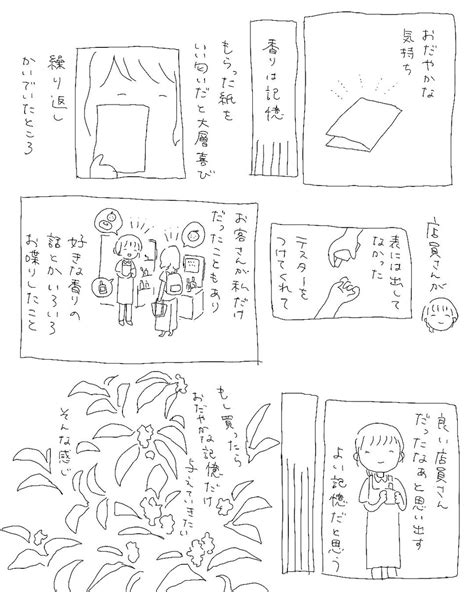 おだやかな
気持ち
香りは記憶
もらった紙を
いい匂いだと大層喜び
繰り返し
かいでいたところ
店員さんが
表には出して
なかった
テスターを
つけてくれて
お客さんが私だけ
だったこともあり
好きな香りの
話とかいろいろ
お喋りしたこと
良い店員さん
だったなあと思い出す
よい記憶だと思う
もし買ったら
おだやかな記憶だけ
与えていきたい
そんな感じ